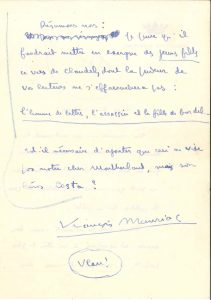 Résumons nous :
Je pense qu'il
faudrait mettre en exergue des jeunes filles
ce vers de Claudel, dont la pudeur de
va lecteurs ne s'effarouchera pas :
l'homme de lettres, l'assassin et la fille de bordel.
est-il nécessaire d'ajouter que ceci ne vise
pas notre cher Montherland, mais son
héros Costa ?
François Mauriac
Vlan!